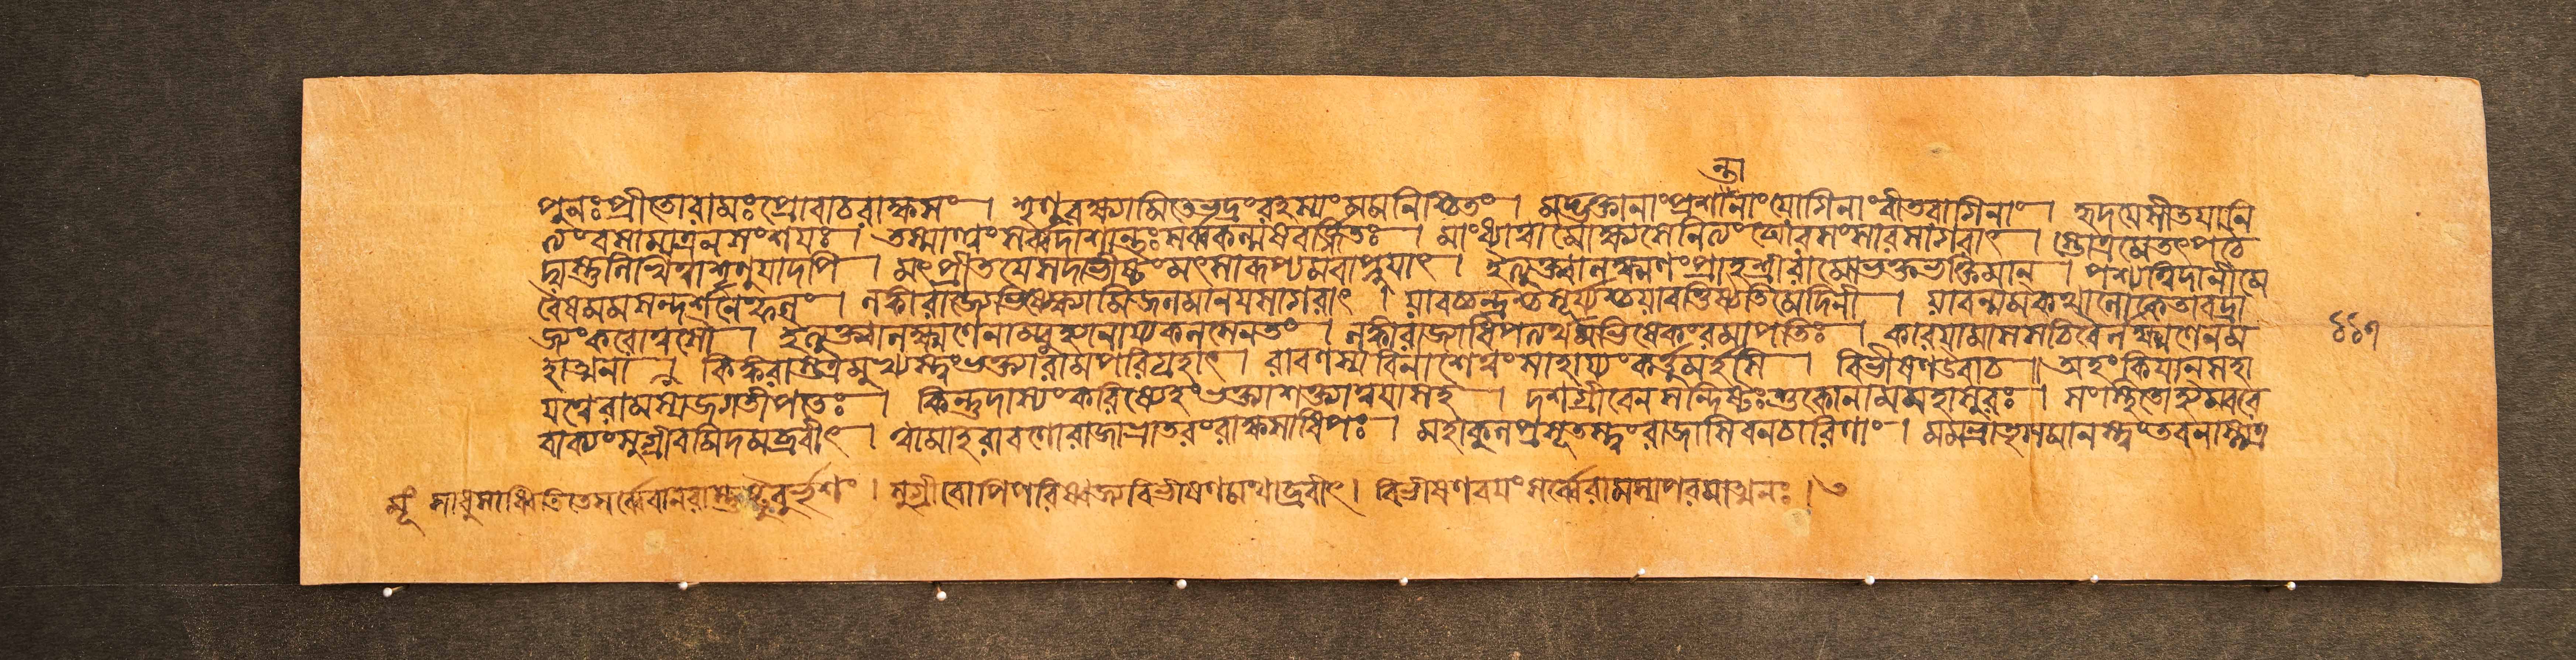 ন্তা
পুনঃপ্রীতোরামঃপ্রোবাচরাক্ষসং । শৃণুবক্ষ্যামিতেভদ্রংরহস্যংমমনিশ্চিতং । মদ্ভক্তানাংপ্রশানাংযোগিনাংবীতরাগিনাং । হৃদয়েসীতয়ানি
ত্যংবসামাত্রনসংশয়ঃ । তস্মাত্ত্বংসর্ব্বদাশান্তঃসর্ব্বকল্মষবর্জ্জিতঃ । মাংধ্যাত্বামোক্ষ্যসেনিত্যংঘোরসংসারসাগরাৎ । স্তোত্রমেতৎপঠে
দ্যস্তুলিখিত্বাশৃণুয়াদপি । মৎপ্রীতয়েমদাভীষ্টংমৎসারূপ্যমবাপ্নুয়াৎ । ইত্যুক্ত্বালক্ষ্মণংপ্রাহশ্রীরামোভক্তভক্তিমান্ । পশ্যত্বিদানীমে
বৈষমমসন্দর্শনেফলং । লঙ্কারাজ্যেভিষেক্ষ্যামিজলমানয়সাগরাৎ । যাবচ্চন্দ্রশ্চসূর্য্যশ্চযাবত্তিষ্ঠতিমেদিনী । যাবন্মমকথালোকেতাবদ্রা
জ্যংকরোত্বসৌ । ইত্যুক্ত্বালক্ষ্মণেনাম্বুহ্যানায্যকলসেনতং । লঙ্কারাজ্যাধিপত্যর্থমভিষেকংরমাপতিঃ । কারয়ামাসসচিবৈর্লক্ষ্মণেনম
হাত্মনা কিঙ্করাস্তত্রমুখ্যস্ত্বংভক্ত্যারামপরিগ্রহাৎ । রাবণস্যবিনাশেত্বংসাহায্যংকর্ত্তুমর্হসি । বিভীষণউবাচ ॥ অহংকিয়ান্সহা
য়ত্বেরামস্যজগতীপতেঃ । কিন্তুদাস্যংকরিষ্যেহংভক্ত্যাশক্ত্যাত্বমায়য়া । দশগ্রীবেনসন্দিষ্টঃশুকোনামমহাসুরঃ । সংস্থিতোহ্যম্বরে
বাক্যংসুগ্রীবমিদমব্রবীৎ । ত্বামাহরাবণোরাজাভ্রাতরংরাক্ষসাধিপঃ । মহাকুলপ্রসূতস্ত্বংরাজাসিবনচারিণাং । মমভ্রাতৃসমানস্ত্বংতবনাস্ত্যত্র
সাধুসাধ্বিতিতেসর্ব্বেবানরাস্তুষ্টুবুর্ভৃশং । সুগ্রীবোপিপরিষ্বজ্যবিভীষণমথাব্রবীৎ । বিভীষণবয়ংসর্ব্বেরামস্যপরমাত্মনঃ । ৬